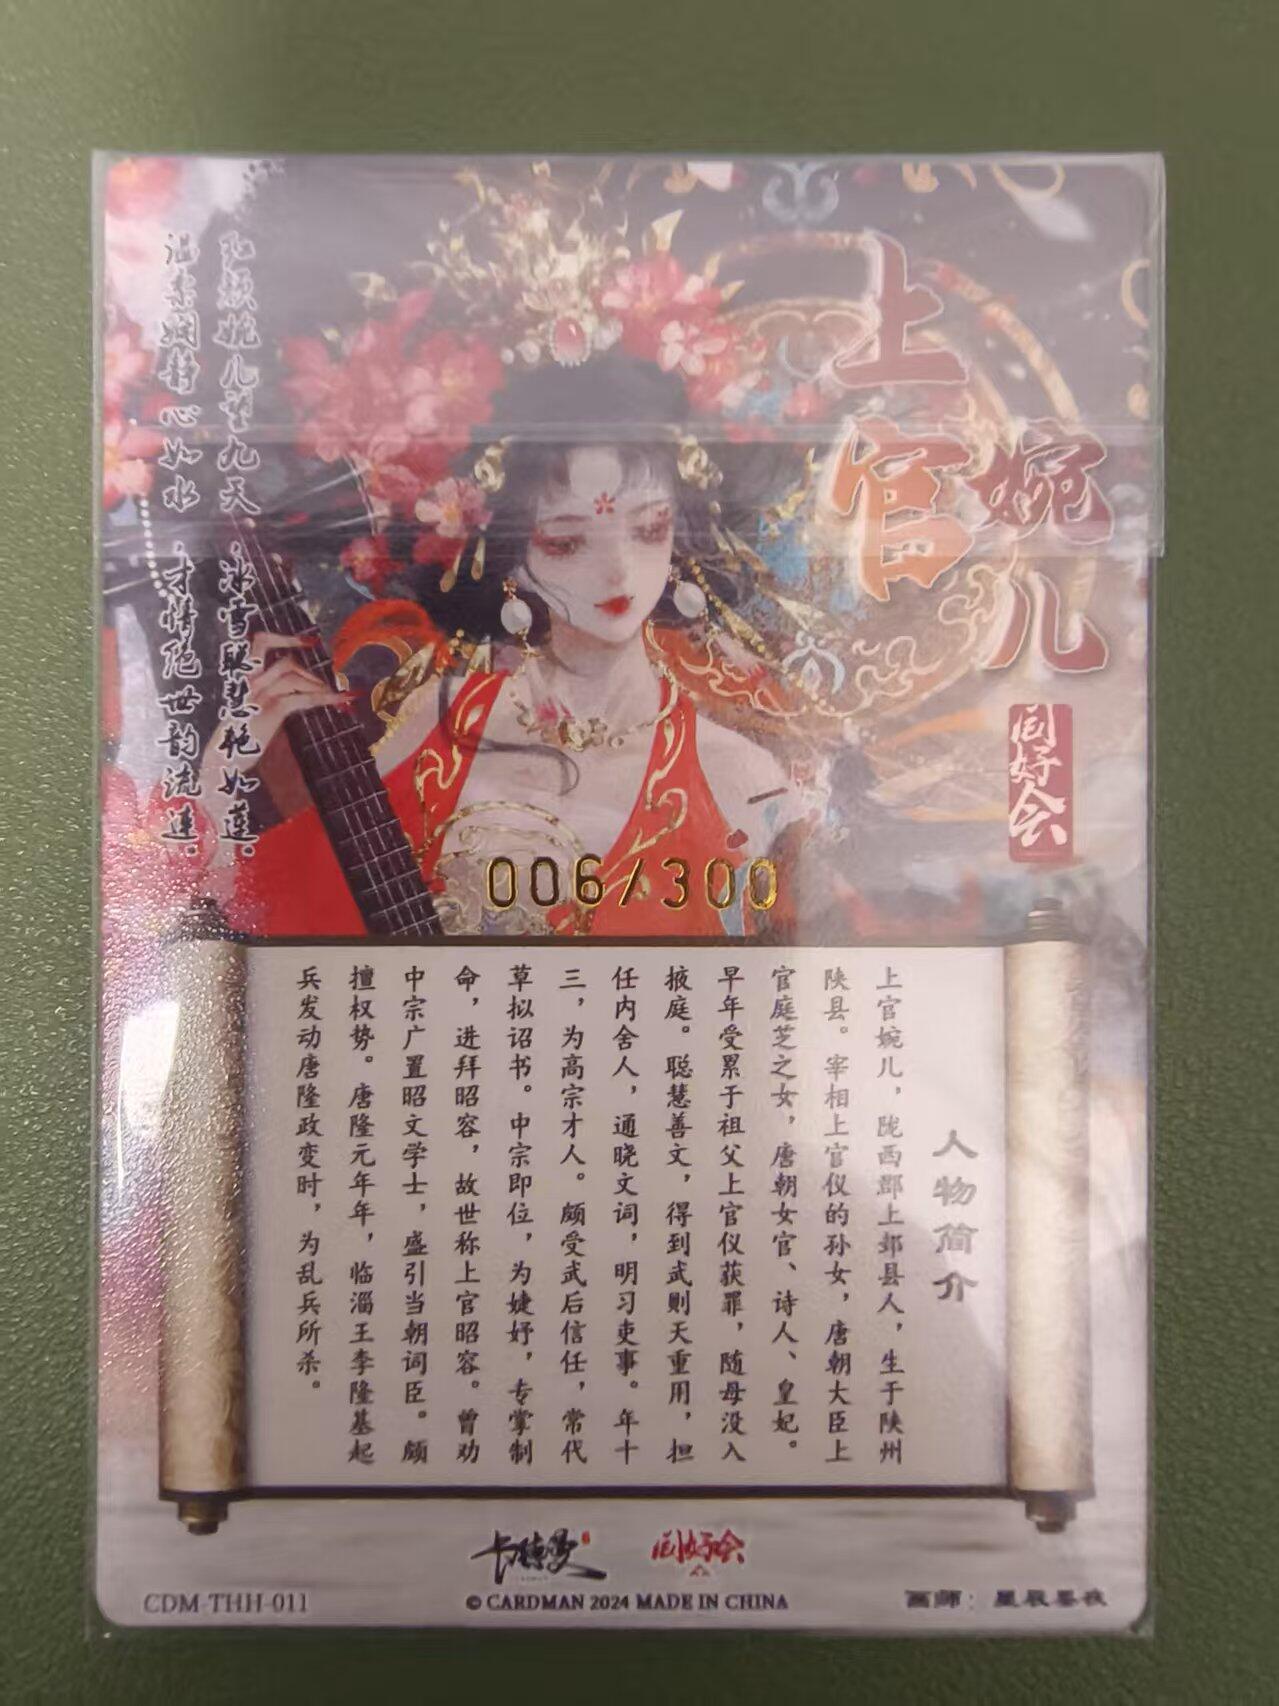 上官
婉儿
同好会
红颜婉儿望九天，冰雪聪慧艳如莲。
温柔娴静心如水，才情绝世韵流连。
006/300
人物简介
上官婉儿，陇西郡上邽县人，生于陕州
陕县。宰相上官仪的孙女，唐朝大臣上
官庭芝之女，唐朝女官、诗人、皇妃。
早年受累于祖父上官仪获罪，随母没入
掖庭。聪慧善文，得到武则天重用，担
任内舍人，通晓文词，明习吏事。年十
三，为高宗才人。颇受武后信任，常代
草拟诏书。中宗即位，为婕妤，专掌制
命，进拜昭容，故世称上官昭容。曾劝
中宗广置昭文学士，盛引当朝词臣。颇
擅权势。唐隆元年年，临淄王李隆基起
兵发动唐隆政变时，为乱兵所杀。
卡德曼
同好会
CDM-THH-011
© CARDMAN 2024 MADE IN CHINA
画师：星辰墨夜